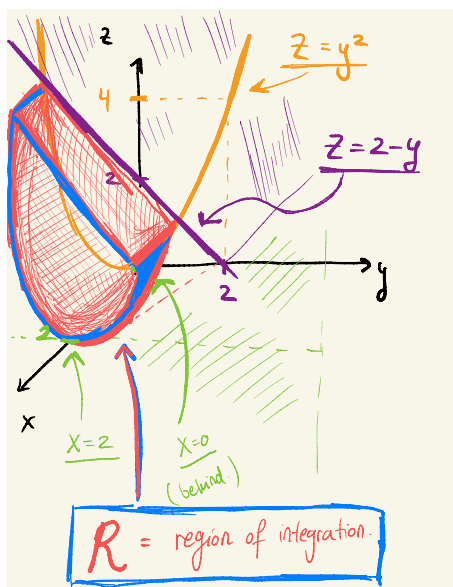 z
Z = y²
4
Z = 2-y
2
y
2
2
x
X=2
X=0
(behind.)
R = region of integration.